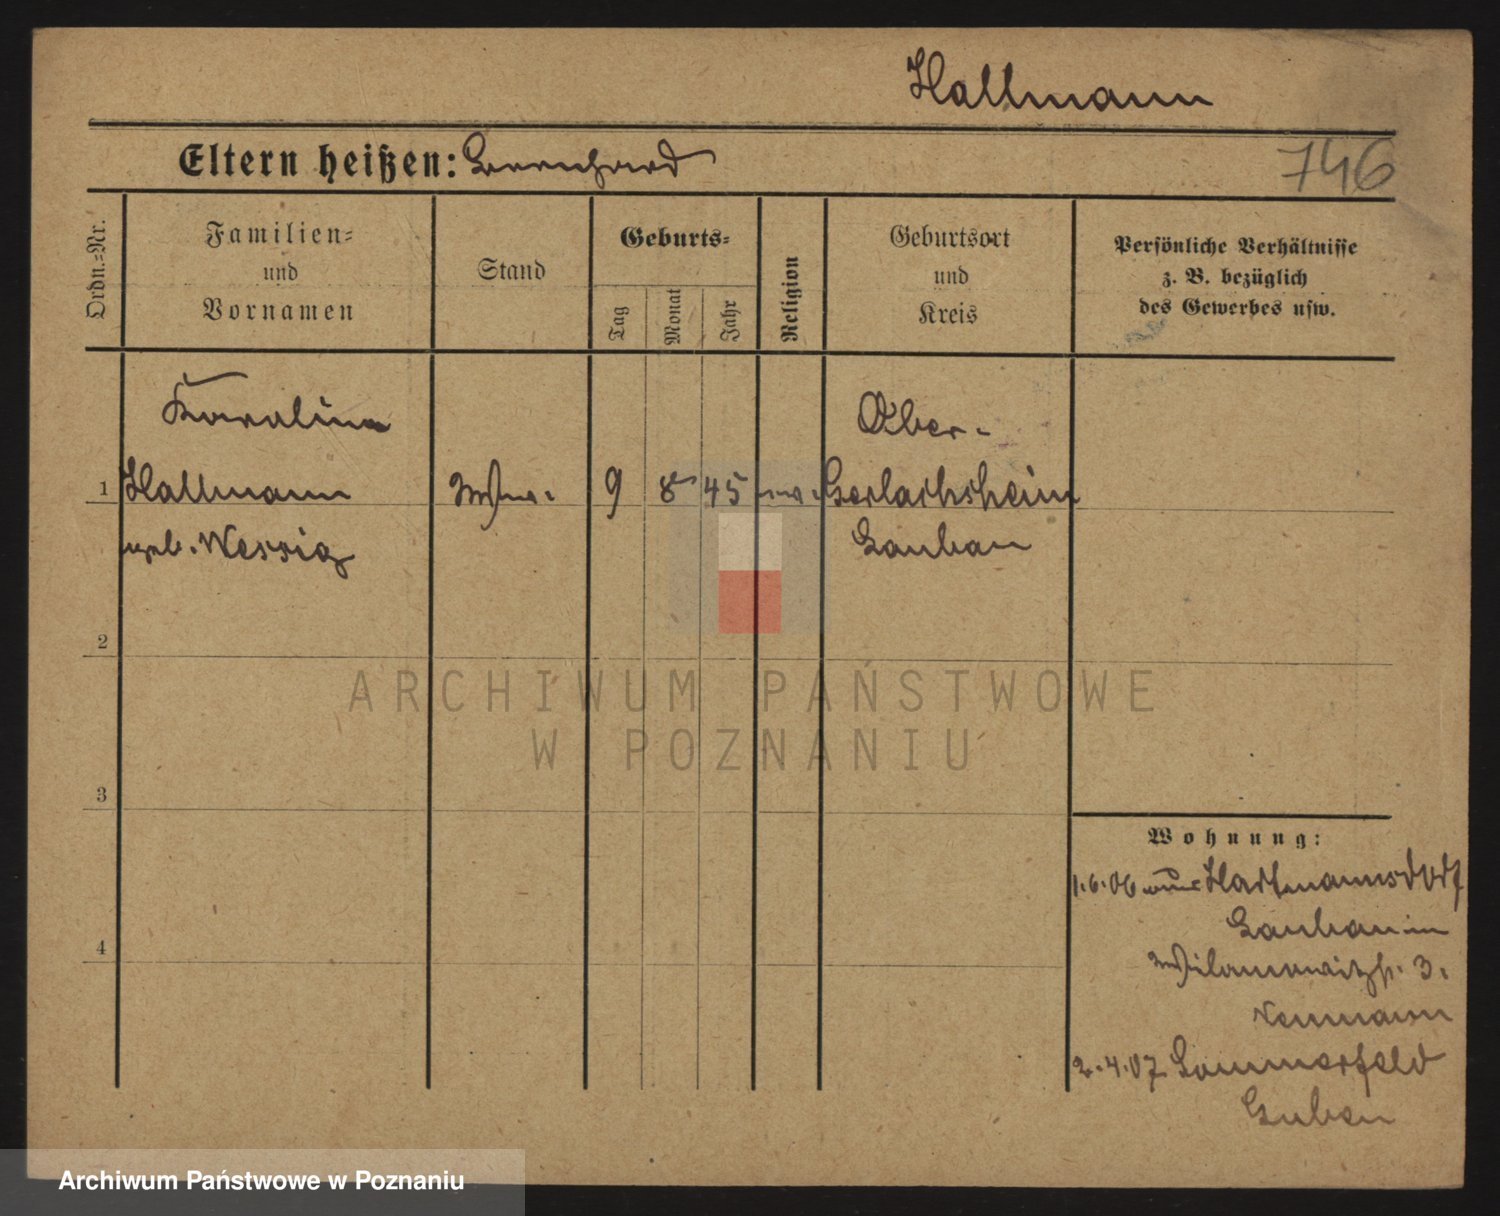 Hallmann
Eltern heißen: Bernhard
746
Ordn.=Nr.
Familien=
und
Vornamen
Stand
Geburts=
Tag
Monat
Jahr
Religion
Geburtsort
und
Kreis
Persönliche Verhältnisse
z. B. bezüglich
des Gewerbes usw.
Karoline
1 Hallmann Ww. 9 8 45 ev. Gerlachsheim
Ober-
geb. Wessig Lauban
2
3
4
Wohnung:
1.6.06 aus Hartmannsdorf
Lauban in
Wilamowitzstr. 3.
Neumann
2.4.07 Sommerfeld
Guben
ARCHIWUM PAŃSTWOWE
W POZNANIU
Archiwum Państwowe w Poznaniu